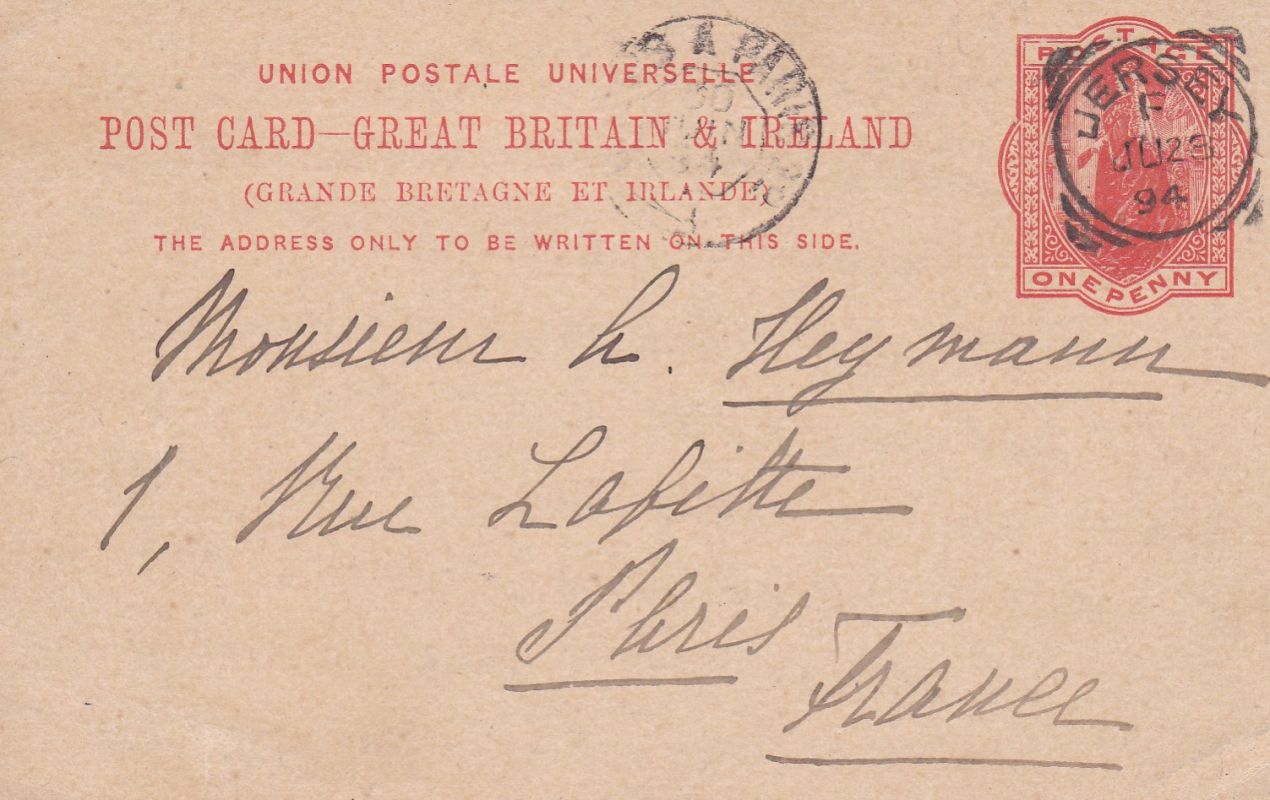 UNION POSTALE UNIVERSELLE
POST CARD—GREAT BRITAIN & IRELAND
(GRANDE BRETAGNE ET IRLANDE)
THE ADDRESS ONLY TO BE WRITTEN ON THIS SIDE.
A PARIS
POSTAGE
ONE PENNY
JERSEY
JU 28
94
Monsieur h. Heymann
1, Rue Lafitte
Paris
France